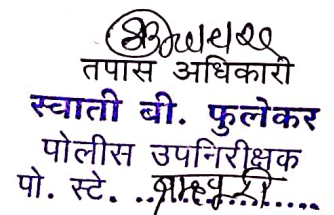 तपास अधिकारी
स्वाती बी. फुलेकर
पोलीस उपनिरीक्षक
पो. स्टे. ..................